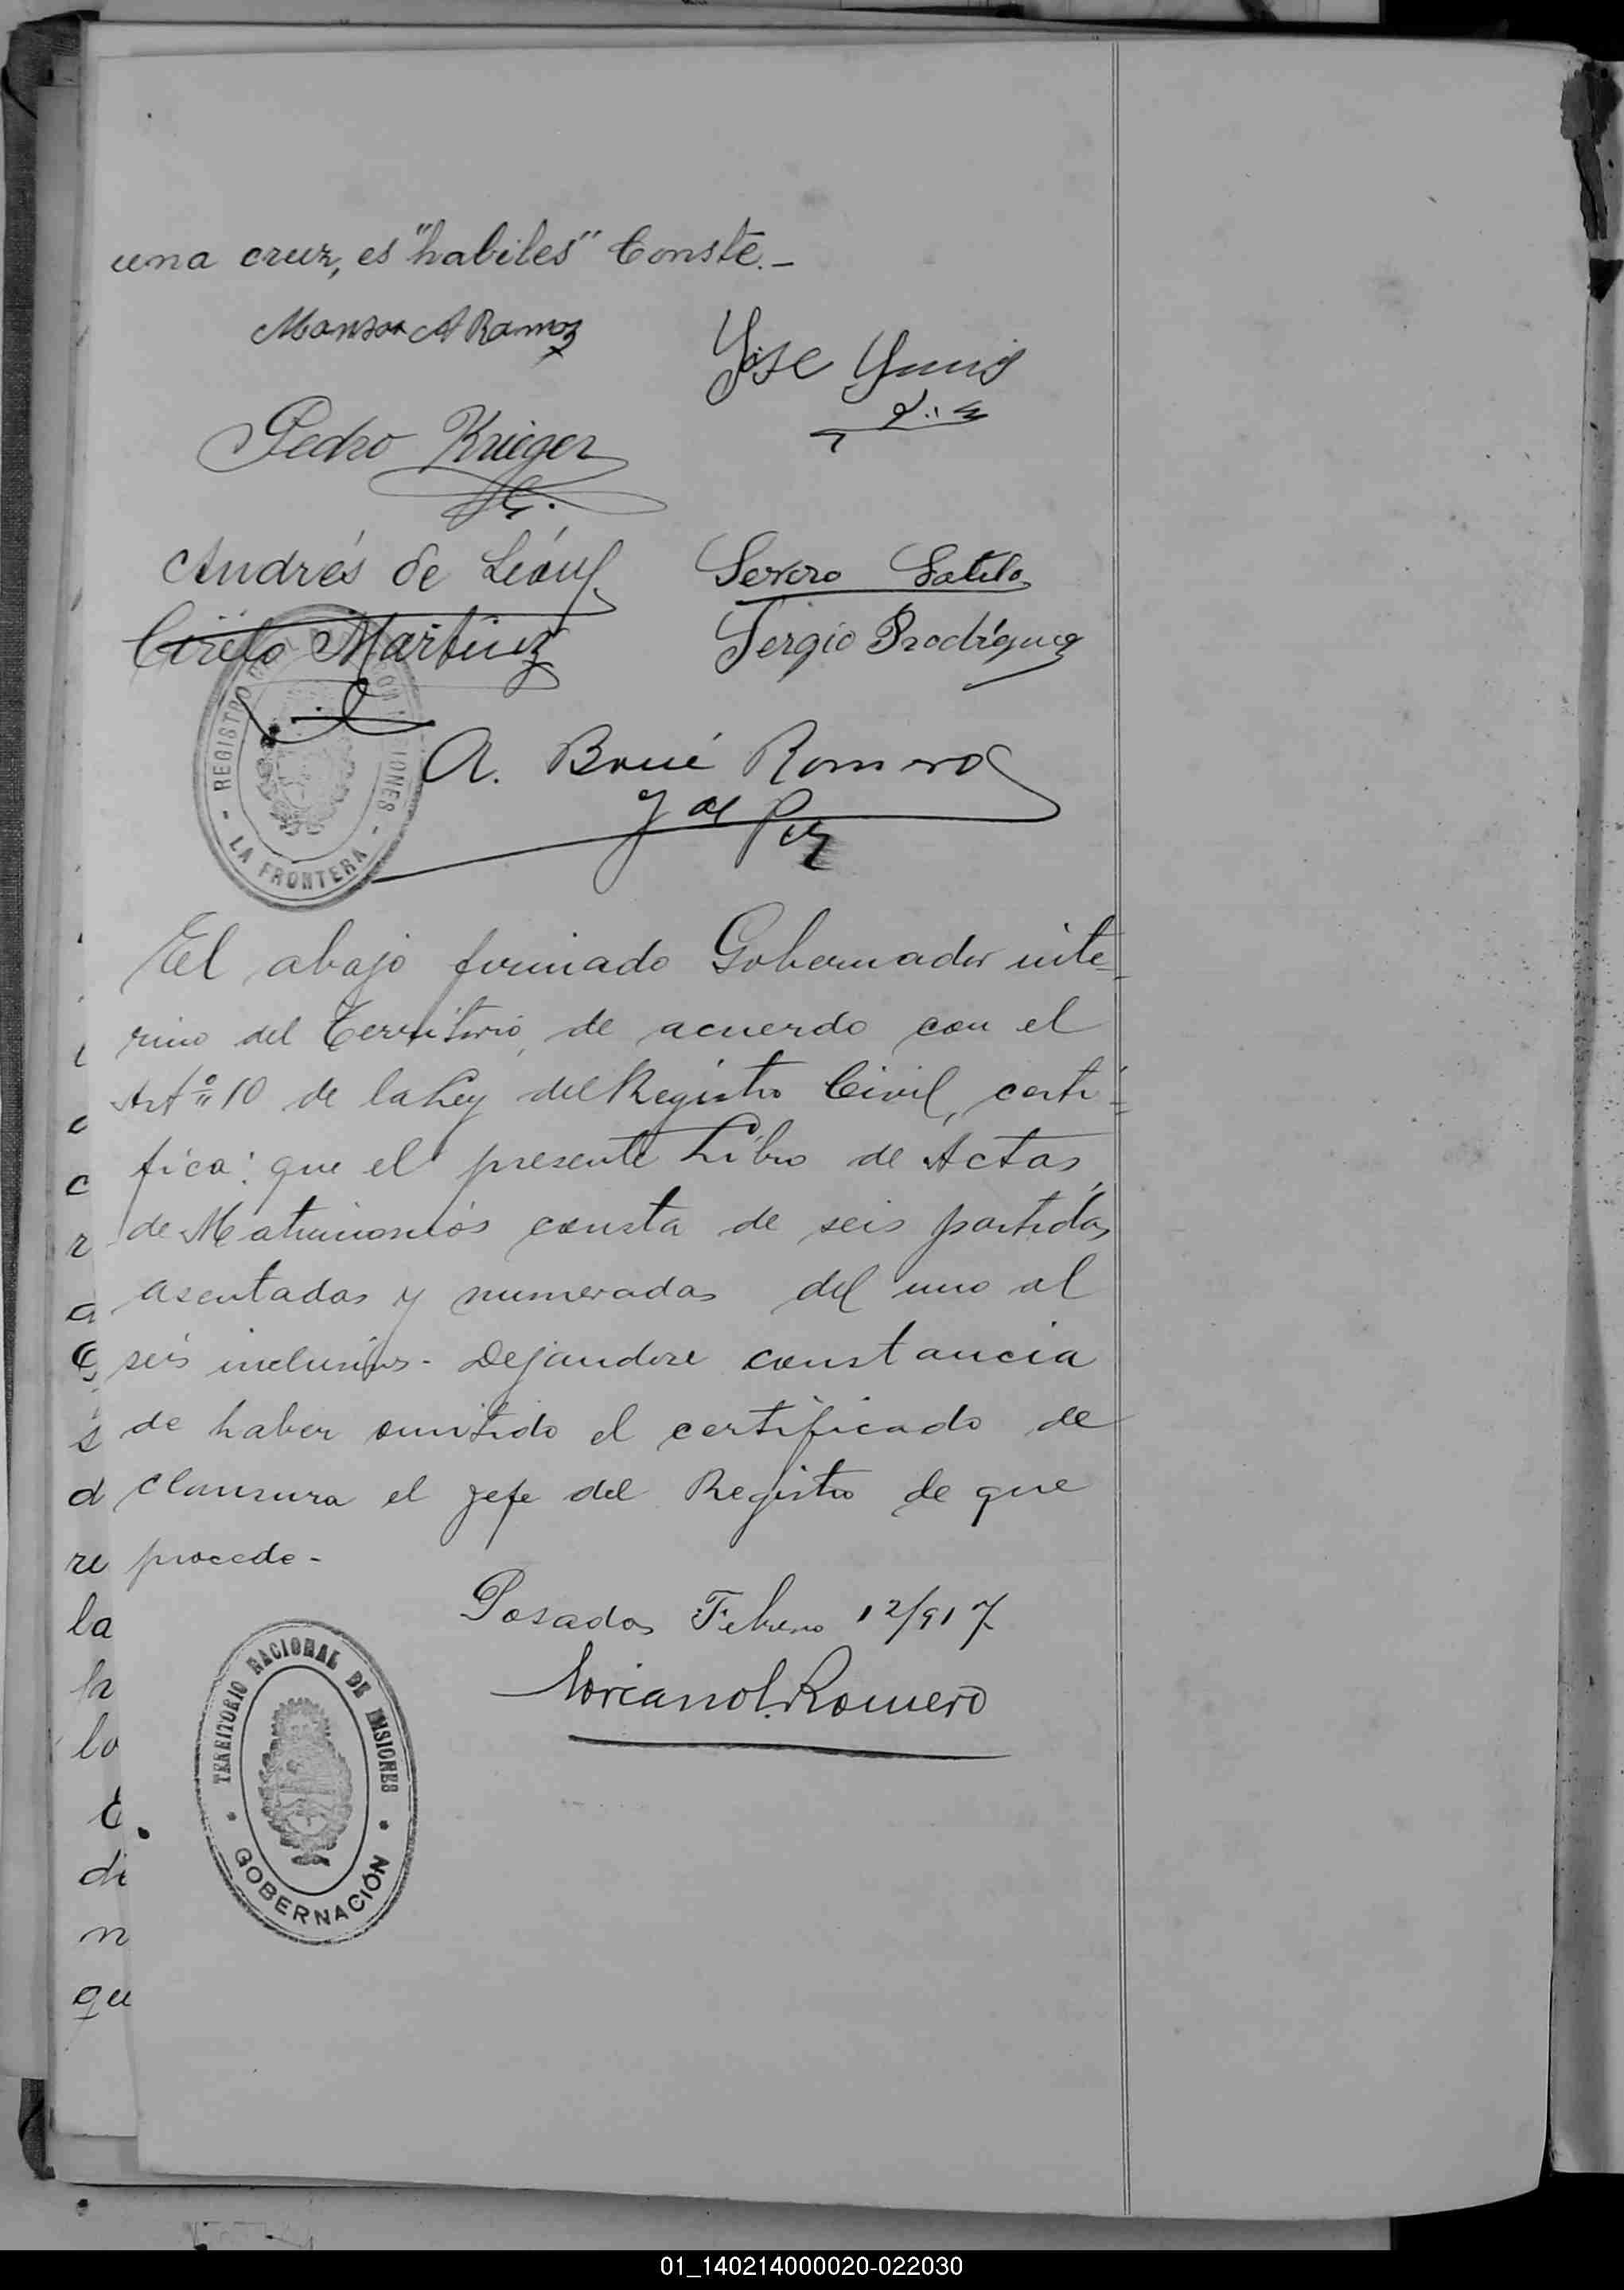 una cruz, es "habiles" Conste.-
A Ramos
Jose Yunis
Pedro Krieger
Andrés de León
Severo Sotelo
Cirilo Martinez
Sergio Rodríguez
REGISTRO
IONES
LA FRONTERA
A. Boué Romero
J de Paz
El abajo firmado Gobernador inte=
rino del Territorio, de acuerdo con el
Artº 10 de la Ley del Registro Civil, certi=
fica: que el presente Libro de Actas,
de Matrimonios consta de seis partidas
asentadas y numeradas del uno al
seis inclusive - Dejandose constancia
de haber omitido el certificado de
clausura el jefe del Registro de que
procede -
Posadas Febrero 12/917
Romero
TERRITORIO NACIONAL DE MISIONES
GOBERNACIÓN
c
c
r
a
s
d
re
la
la
lo
E
di
n
qu
01_140214000020-022030